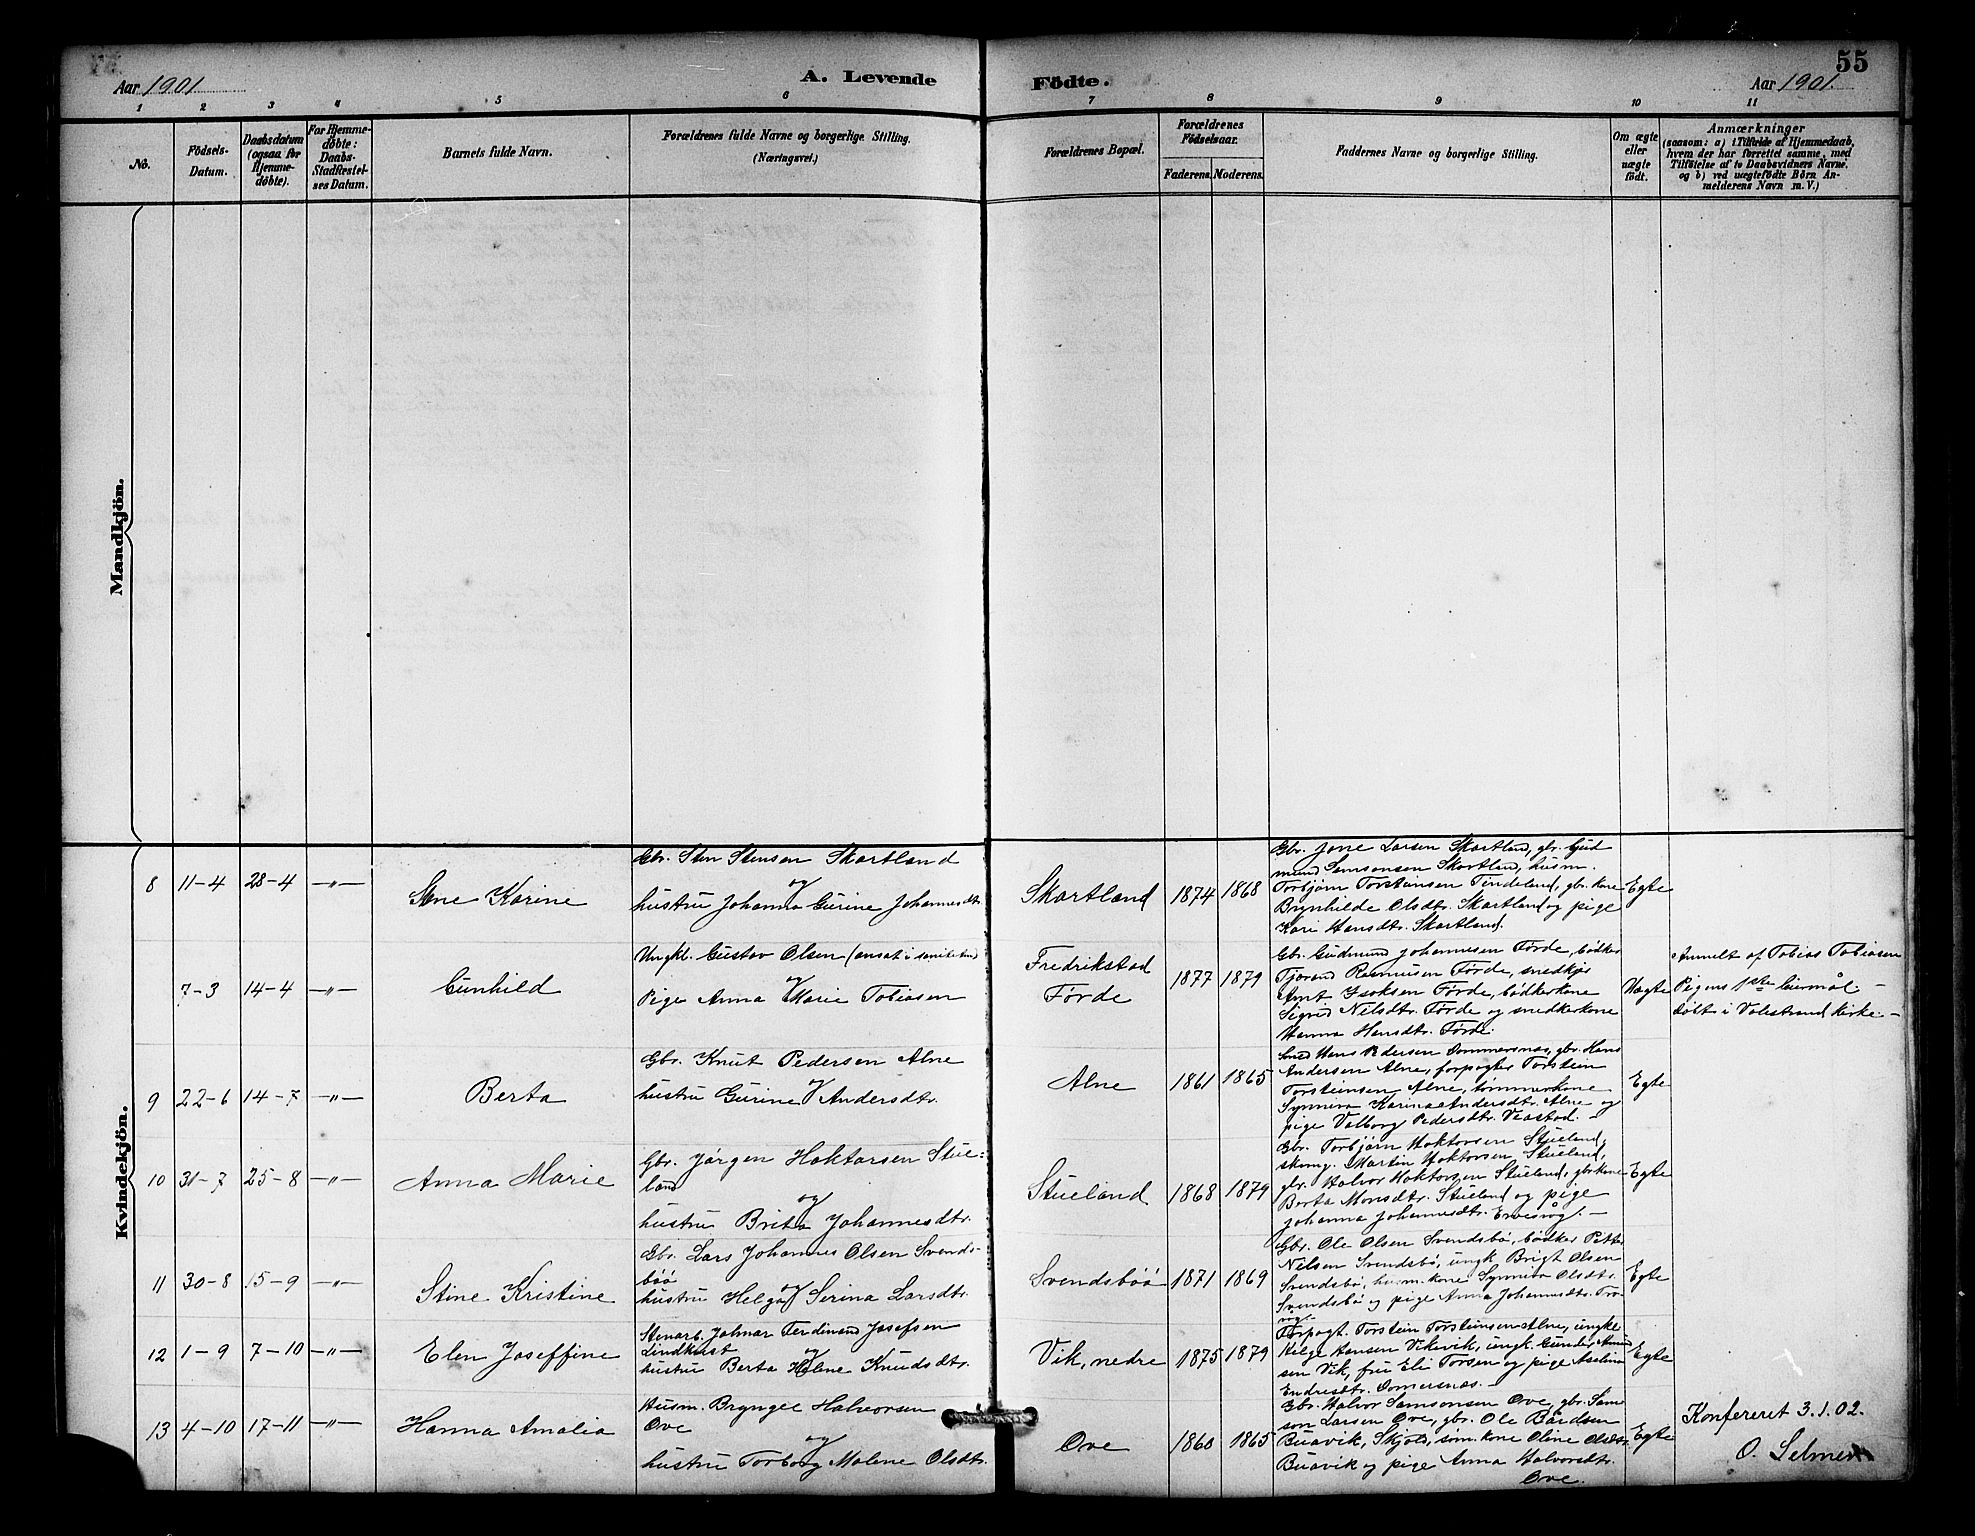 55
Aar 1901
A. Levende
Födte.
Aar 1901.
1 2 3 4 5 6 7 8 9 10 11
No.
Födsels-
Datum.
Daabsdatum
(ogsaa for
Hjemme-
döbte).
For Hjemme-
döbte:
Daabs-
Stadfæstel-
ses Datum.
Barnets fulde Navn.
Forældrenes fulde Navne og borgerlige Stilling.
(Næringsvei.)
Forældrenes Bopæl.
Forældrenes
Födselsaar.
Faderens. Moderens.
Faddernes Navne og borgerlige Stilling.
Om ægte
eller
uægte
födt.
Anmærkninger
(saasom: a) i Tilfælde af Hjemmedaab,
hvem der har forrettet samme, med
Tilföielse af to Daabsvidners Navne,
og b) ved uægtefödte Börn An-
melderens Navn m. V.)
Mandkjön.
Kvindekjön.
8 11-4 28-4 -"-
Stine Karine
Gbr. Sten Stensen Skartland
og
hustru Johanna Gurine Johannesdtr.
Skartland
1874 1868
Gbr. Jone Larsen Skartland, gbr. Gud
mund Samsonsen Skartland, husm.
Torbjørn Torstensen Tindeland, gbr. kone
Brynhilde Olsdtr. Skartland og pige
Kari Hansdtr. Skartland.
Egte
7-3 14-4 -"-
Gunhild
Ungkl. Gustav Olsen (ansat i saniteten)
og
Pige Anna Marie Tobiasen
Fredrikstad
Førde
1877 1879
Gbr. Gudmund Johannesen Førde, bødker
Tjerand Rasmusen Førde, snedker
Amt Isaksen Førde, bødkerkone
Sigrid Nelsdtr. Førde og snedkerkone
Hanna Hansdtr. Førde.
Uægte
Anmelt af Tobias Tobiasen
Pigens 1ste leiermål. -
døbt i Valestrand kirke. -
9 22-6 14-7 -"-
Berta
Gbr. Knut Pedersen Alne
og
hustru Gurine Andersdtr.
Alne
1861 1865
Smed Hans Pedersen Dommersnes, gbr. Hans
Andersen Alne, forpagter Torstein
Torsteinsen Alne, tømmerkone
Synneva Karina Andersdtr. Alne og
pige Valborg Pedersdtr. Veastad. -
Egte
10 31-7 25-8 -"-
Anna Marie
Gbr. Jørgen Haktorsen Stue-
land
og
hustru Brita Johannesdtr.
Stueland
1868 1879
Gbr. Torbjørn Haktorsen Stueland,
skomg. Martin Haktorsen Stueland,
gbr. Halvor Haktorsen Stueland, gbrkone
Berta Monsdtr. Stueland og pige
Johanna Johannesdtr. Ervesvåg. -
Egte
11 30-8 15-9 -"-
Stine Kristine
Gbr. Lars Johannes Olsen Svends-
bøö
og
hustru Helga Serina Larsdtr.
Svendsbøö
1871 1869
Gbr. Ole Olsen Svendsbø, bødker Petter
Nelsen Svendsbø, ungk Brigt Olsen
Svendsbø, husm. kone Synneva Olsdtr.
Svendsbø og pige Anna Johannesdtr. Tro-
våg. -
Egte
12 1-9 7-10 -"-
Elen Joseffine
Stenarb. Jalmar Ferdinand Josefsen
Lindkvist
og
hustru Berta Helene Knudsdtr.
Vik, nedre
1875 1879
Forpagt. Torstein Torsteinsen Alne, ungke
Helge Hansen Vikevik, ungk. Gunder Amund
sen Vik, fru Eli Torsen og pige Aselina
Endresdtr. Domersnes. -
Egte
13 4-10 17-11 -"-
Hanna Amalia
Husm. Bryngel Halvorsen
Ove
og
hustru Torborg Malene Olsdtr.
Ove
1860 1865
Gbr. Halvor Samsonsen Ove, gbr. Sam
son Larsen Ove, gbr. Ole Bårdsen
Buavik, Skjold, søm. kone Oline Olsdtr.
Buavik og pige Anna Halvorsdtr.
Ove.
Egte
Konfereret 3.1.02.
O. Selmer